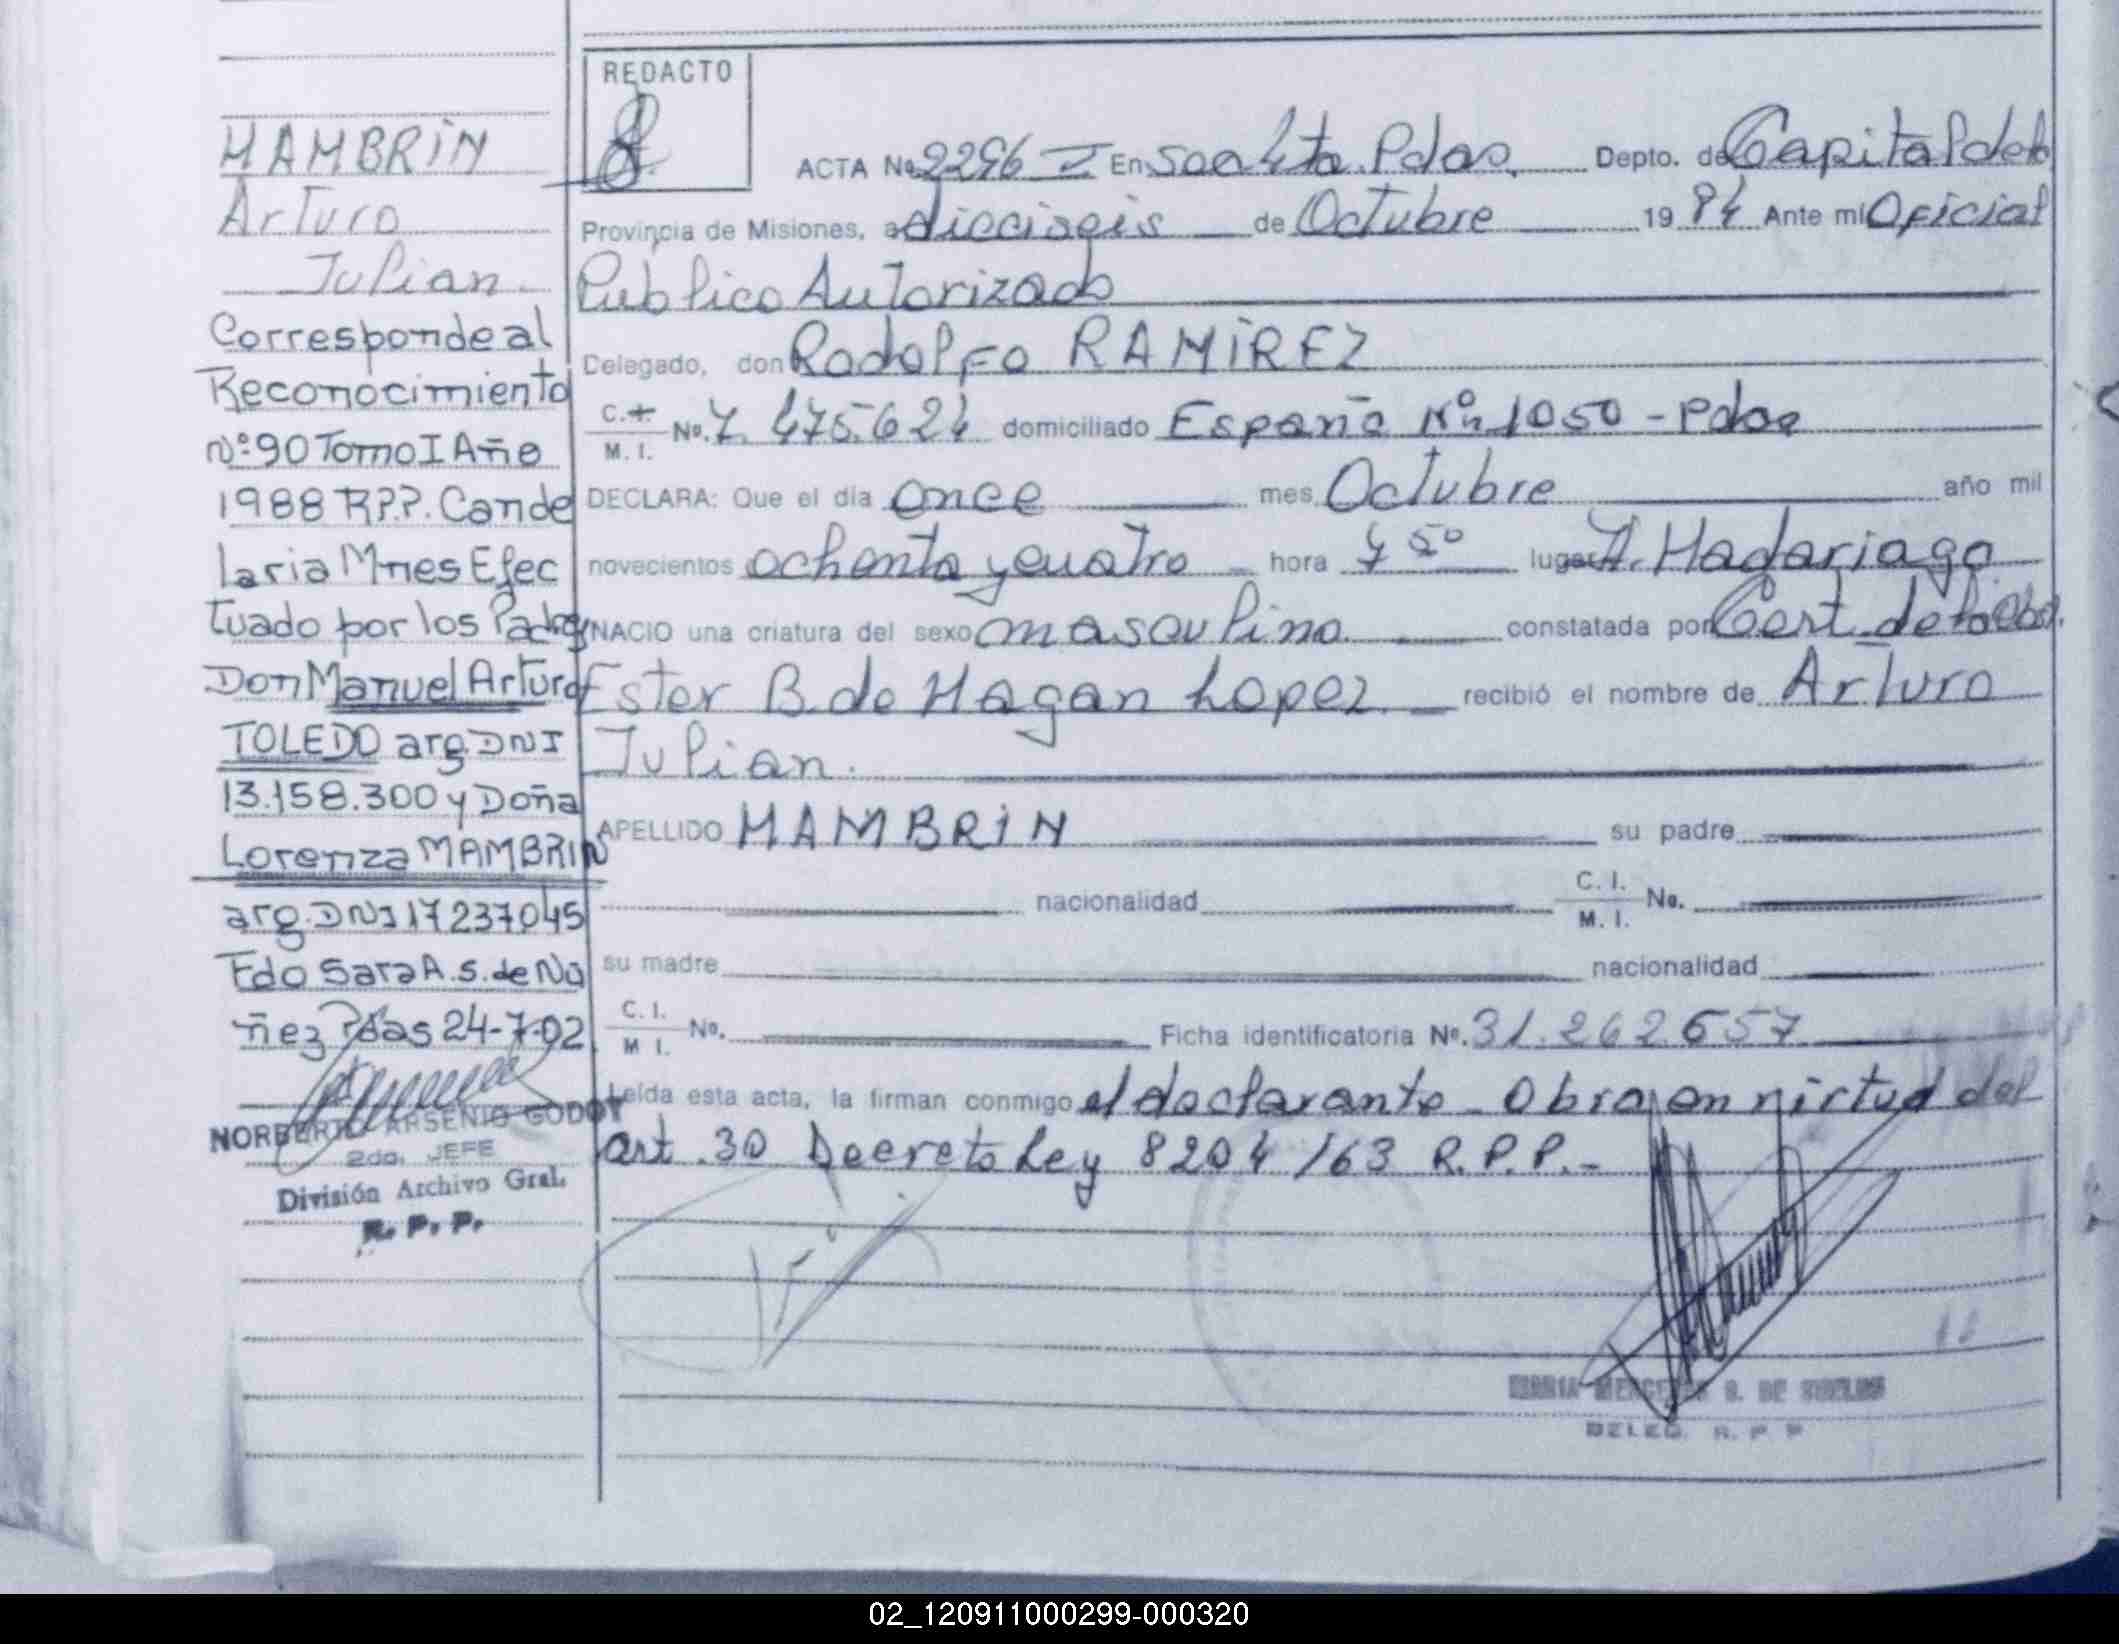 MAMBRIN
Arturo
Julian.
Corresponde al
Reconocimiento
Nº 90 Tomo I Año
1988 R.P.P. Cande
laria Mnes Efec
tuado por los Padres
Don Manuel Arturo
TOLEDO arg. DNI
13.158.300 y Doña
Lorenza MAMBRIN
arg. DNI 17237045
Fdo Sara A. S. de Nú
ñez Pdas 24-7-02
NORBERTO ARSENIO GODOY
2do. JEFE
División Archivo Gral.
R. P. P.
REDACTO
ACTA Nº 2296 I En Pdas, Depto. de Capital de la
Provincia de Misiones, a dieciseis de Octubre 19 84 Ante mí Oficial
Publico Autorizado
Delegado, don Rodolfo RAMIREZ
C. I. M. I. Nº. 7.475.624 domiciliado España Nº 1050 - Pdas
DECLARA: Que el día once mes Octubre año mil
novecientos ochenta y cuatro hora 7 50 lugar H. Madariaga
NACIO una criatura del sexo masculino constatada por Cert. de la Obst.
Ester B. de Hagan Lopez. recibió el nombre de Arturo
Julian.
APELLIDO MAMBRIN su padre
nacionalidad C. I. M. I. No.
su madre nacionalidad
C. I. M I. Nº. Ficha identificatoria Nº. 31.262.657
Leída esta acta, la firman conmigo el declarante - Obra en virtud del
art. 30 Decreto Ley 8204/63 R.P.P.-
MARIA MERCEDES S. DE
DELEG. R. P P
02_120911000299-000320